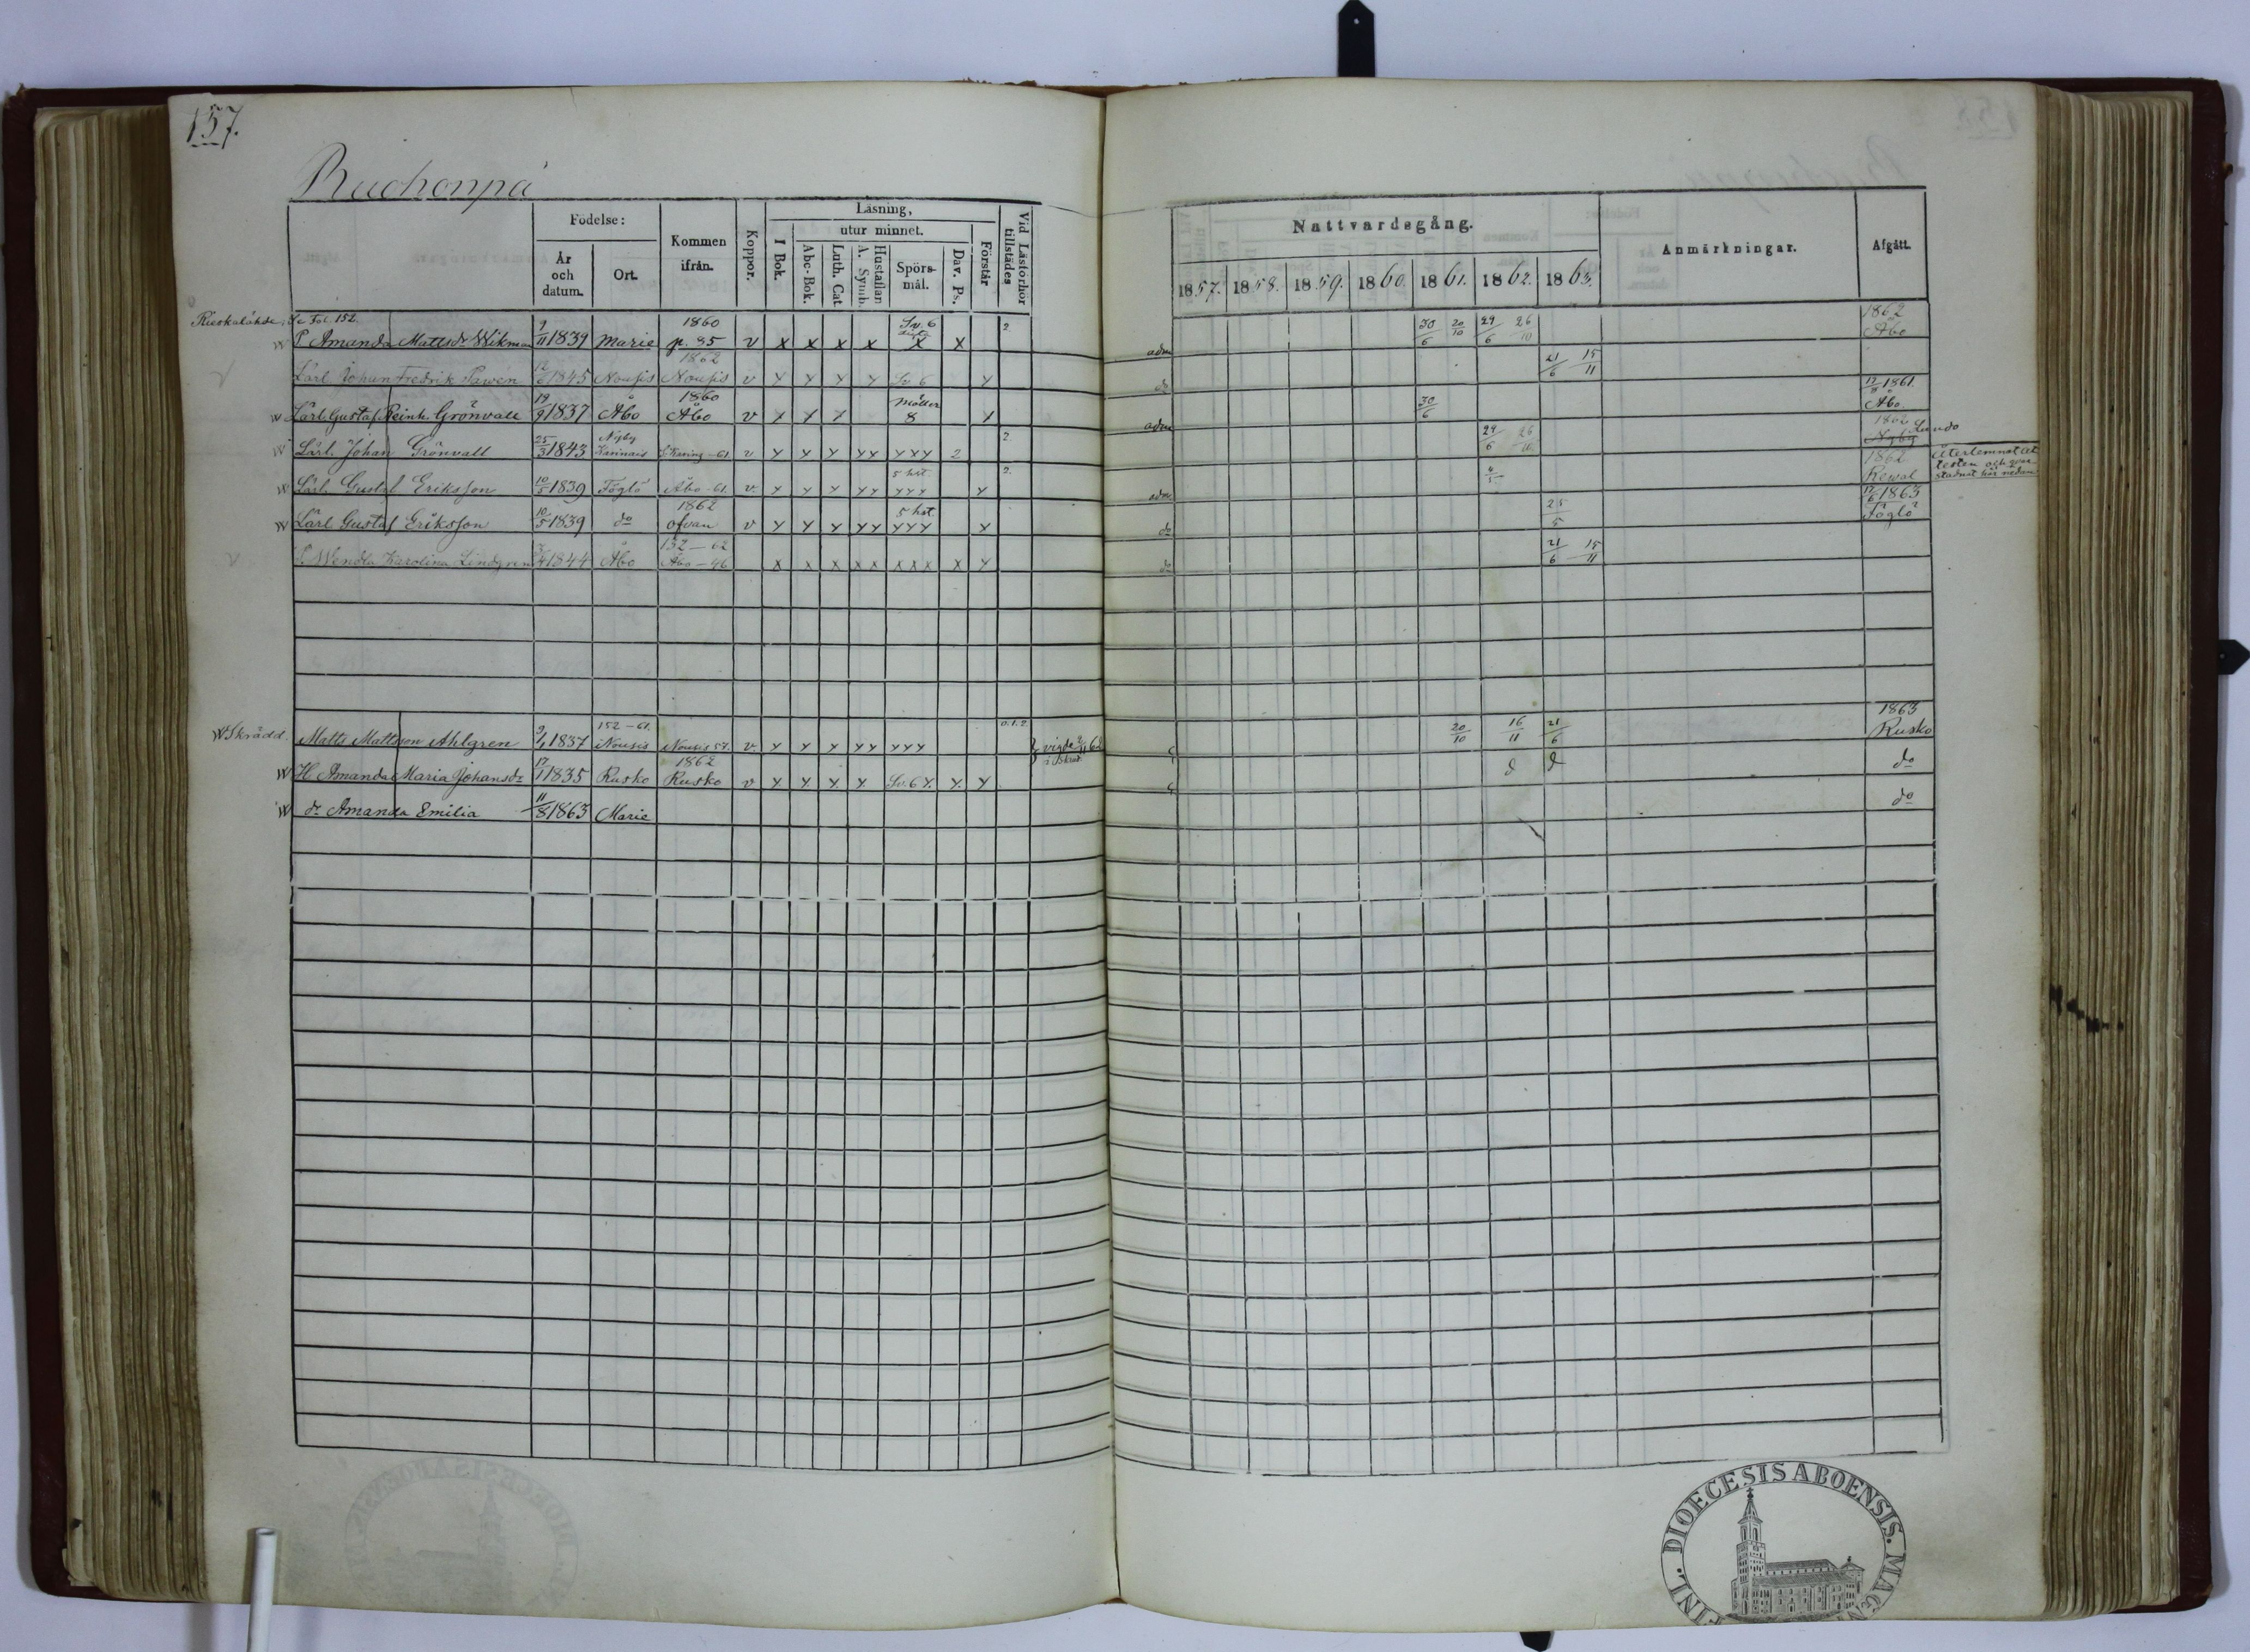 157.
Ruohonpä
Födelse:
År och datum.
Ort.
Kommen ifrån.
Koppor.
Läsning,
I Bok.
utur minnet.
Abc-Bok.
Luth. Cat.
Hustaflan A. Symb.
Spörs-mål.
Dav. Ps.
Förstår
Vid Läsförhör tillstädes
Nattvardsgång.
1857. 1858. 1859. 1860. 1861. 1862. 1863.
Anmärkningar.
Afgått.
Se Fol. 152.
P. Amanda Mattsdr Wikman 9/11 1839 Marie 1860 p. 85 v x x x x Sv. 6 x x 2. adm 30/6 20/10 29/6 26/10 1862 Åbo
Lärl Johan Fredrik Pawén 12/6 1845 Nousis 1862 Nousis v y y y y Sv. 6 y do 21/6 15/11
w Lärl. Gustaf Reinh. Grönvall 19/9 1837 Åbo 1860 Åbo v x x x Möller 8 y adm 30/6 17/8 1861. Åbo.
w Lärl. Johan Grönvall 25/3 1843 Nyby Karinais -61. v y y y y y y y y 2 2. 29/6 26/10 1862 Nyby Lundo
w Lärl. Gustaf Eriksson 10/5 1839 Föglö Åbo -61. v. y y y y y 5 hst. y y y y 2. adm 4/5 1862 Rewal Återlemnat at testen och qvar stadnat här nedan
w Lärl Gustaf Eriksson 10/5 1839 do 1862 ofvan v y y y y y 5 hst y y y y do 25/5 17/6 1863 Föglö
P. Wendla Karolina Lindgren 1844 Åbo 132-62 Åbo -46 x x x x x x x x x y do 21/6 15/11
w Skrädd. Matts Mattsson Ahlgren 9/1 1837 152-61. Nousis Nousis 57. v. y y y y y y y y 0.1.2. vigde 2/11 62 20/10 16/11 21/6 1863 Rusko
w H. Amanda Maria Johansdr 17/1 1835 Rusko 1862 Rusko v y y y y Sv. 6 y. y. y d d do
w dr Amanda Emilia 11/8 1863 Marie do
FINL. DIOECESIS ABOENSIS. MAGN